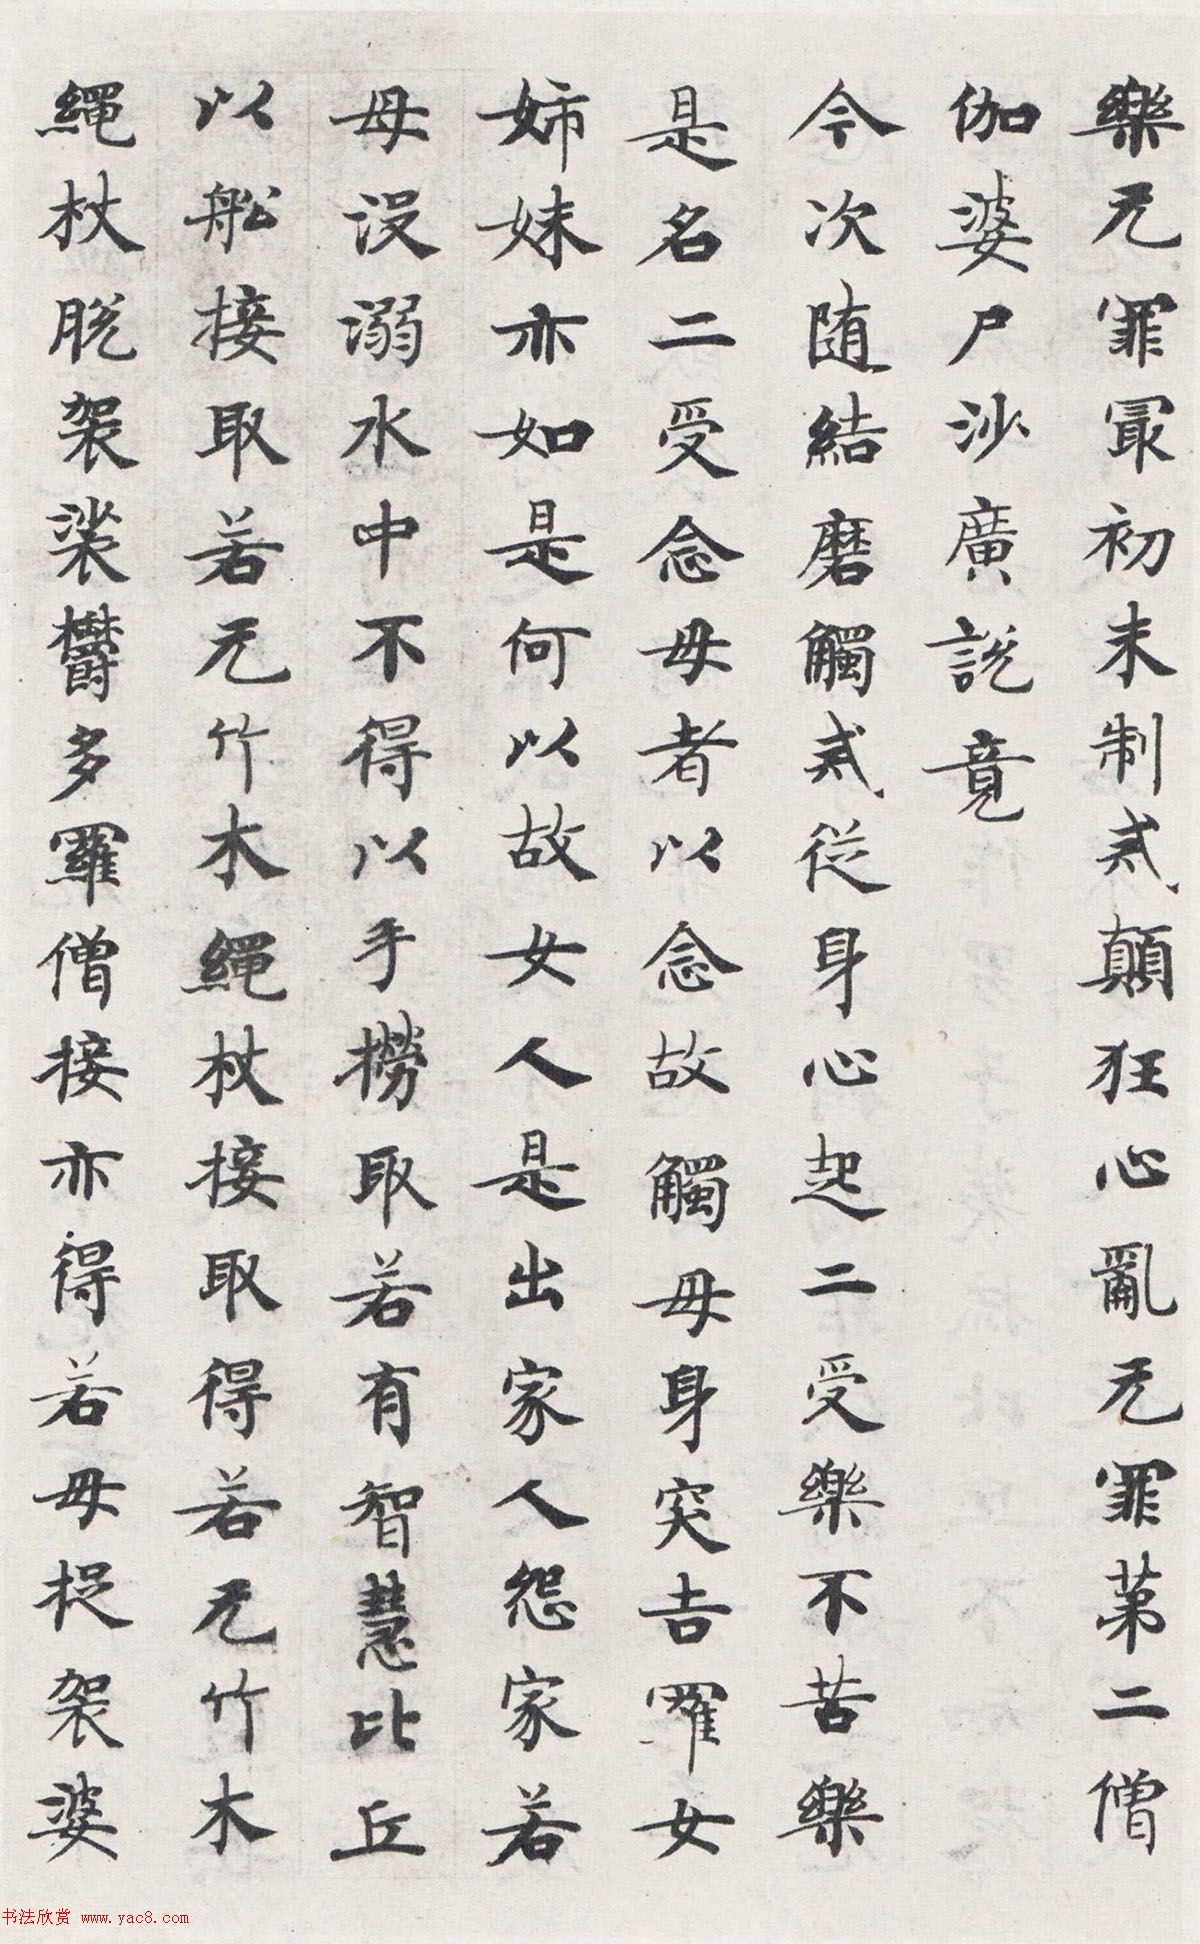 樂无罪冣初未制戒顛狂心亂无罪苐二僧
伽婆尸沙廣説竟
今次随結磨觸戒從身心起二受樂不苦樂
是名二受念母者以念故觸母身突吉羅女
姉妹亦如是何以故女人是出家人怨家若
母没溺水中不得以手撈取若有智慧比丘
以舩接取若无竹木繩杖接取得若无竹木
繩杖脱袈裟欝多羅僧接亦得若母捉袈婆
书法欣赏 www.yac8.com